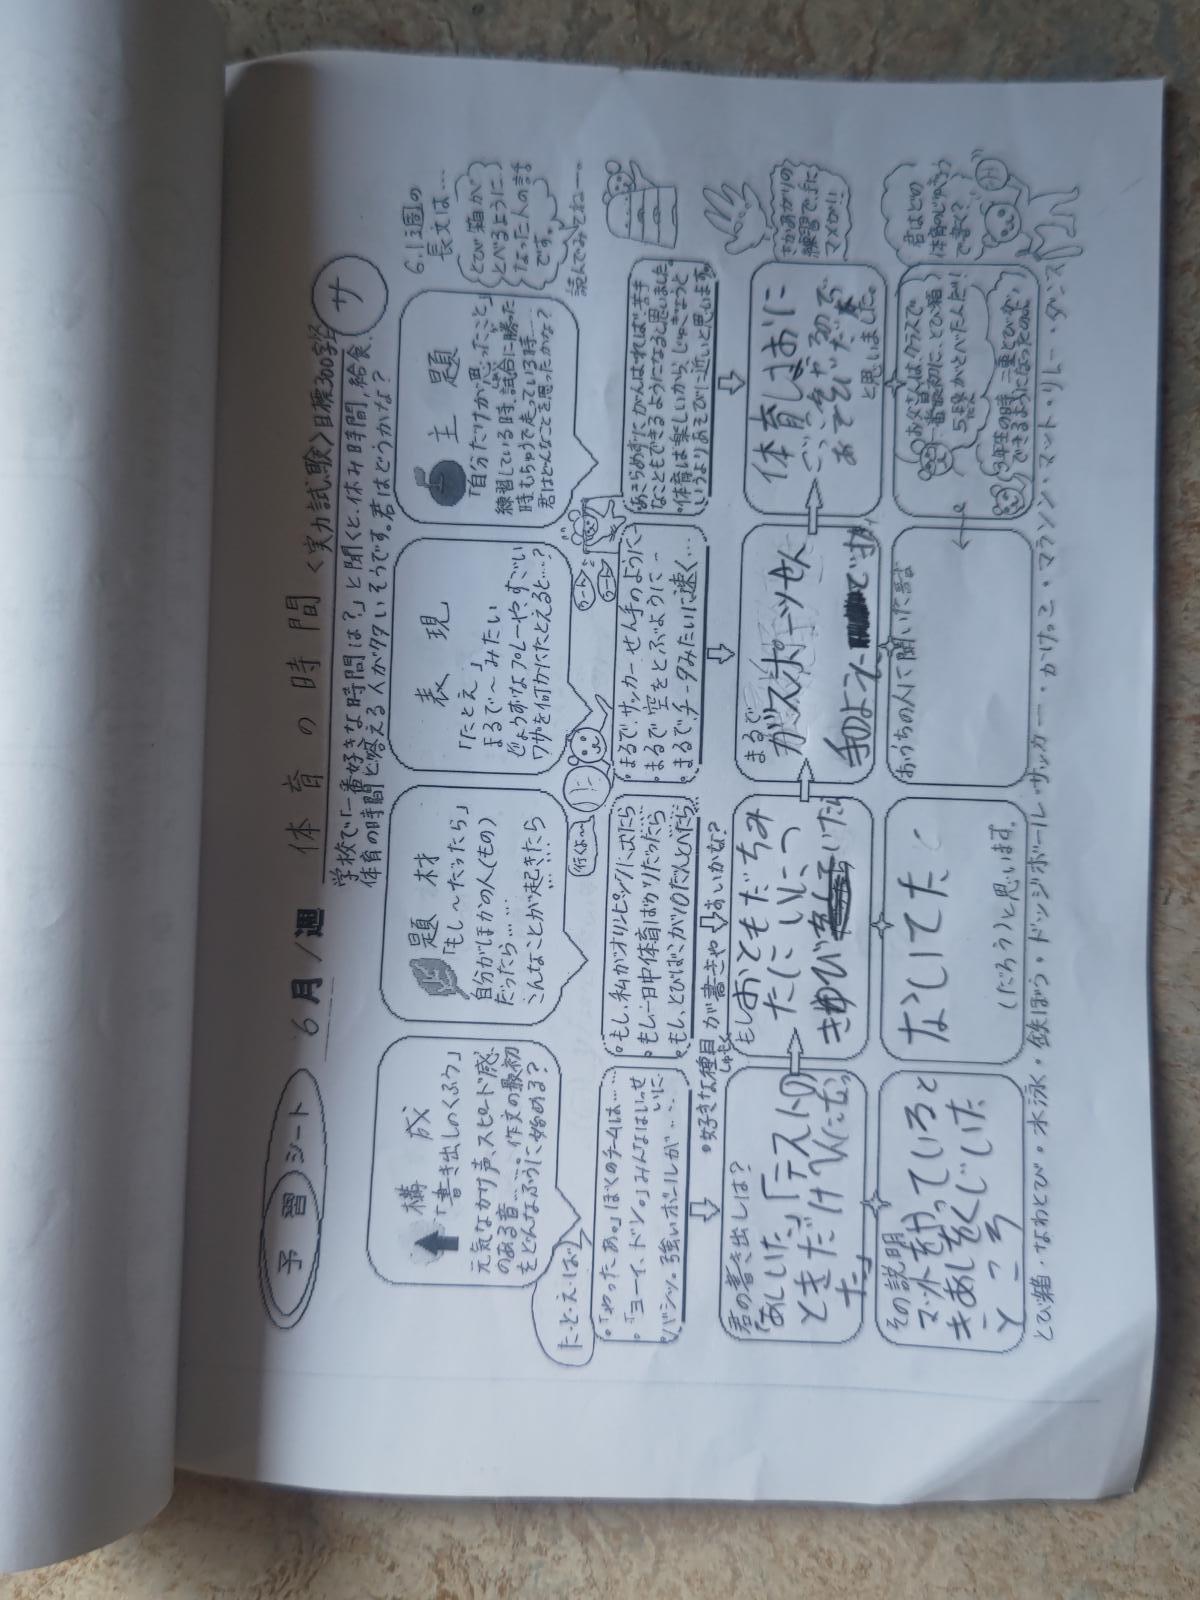 予習シート 6月1週 体育の時間 <実力試験>目標300字 サ
学校で「一番好きな時間は?」と聞くと、休み時間、給食、
体育の時間と答える人が多いそうです。君はどうかな?
構成
「書き出しのくふう」
元気なかけ声、スピード感
のある音……。作文の最初
をどんなふうに始める?
題材
「もし〜だったら」
自分がほかの人(もの)
だったら……
こんなことが起きたら
表現
「たとえ」
まるで〜みたい
じょうずなプレーや、すごい
ワザを何かにたとえると…?
主題
「自分だけが思ったこと」
練習している時、試合に勝った
時、もちゅうで走っている時…
君はどんなことを思ったかな?
6.1週の
長文は…
とび箱が
とべるように
なった人の話
です。
読んでみてねー。
た・と・え・ば
。「やったあ。」ぼくのチームは…
。「ヨーイ、ドン。」みんなはいっせいに…
。バシッ。強いボールが……
行くよ〜
。もし、私がオリンピックに出たら
。もし、一日中体育ばかりだったら
。もし、とびばこが10だんとべたら…
。まるで、サッカーせん手のように
。まるで空をとぶように…
。まるで、チータみたいに速く…
。あきらめずにがんばれば、苦手
なこともできるようになると思いました。
。体育は楽しいから、じゅぎょうと
いうよりあそびに近いと思います。
。好きな種目が書きやすいかな?
しゅもく
君の書き出しは?
「あしいた」「テストの
ときだけへんになっ
た」
もし
おともだちみ
たにいしつ
きゆび
いたら
まるで
がスポーツせん
手のように
です
体育しはおに
と思いました。
さかあがりの
練習で、手に
マメが!!
その説明
マッ外をもっているとき
あしをくじいた
ところ
なしてた
(だろう)と思います。
おうちの人に聞いた話
お父さんはクラスで
一番最初に、とび箱
5段がとべたんだ!
3年生の時、二重とびが
できるようになったのよ。
君はどの
体育のじゅぎょう
で書く?
とび箱・なわとび・水泳・鉄ぼう・ドッジボール・サッカー・かけっこ・マラソン・マット・リレー・ダンス